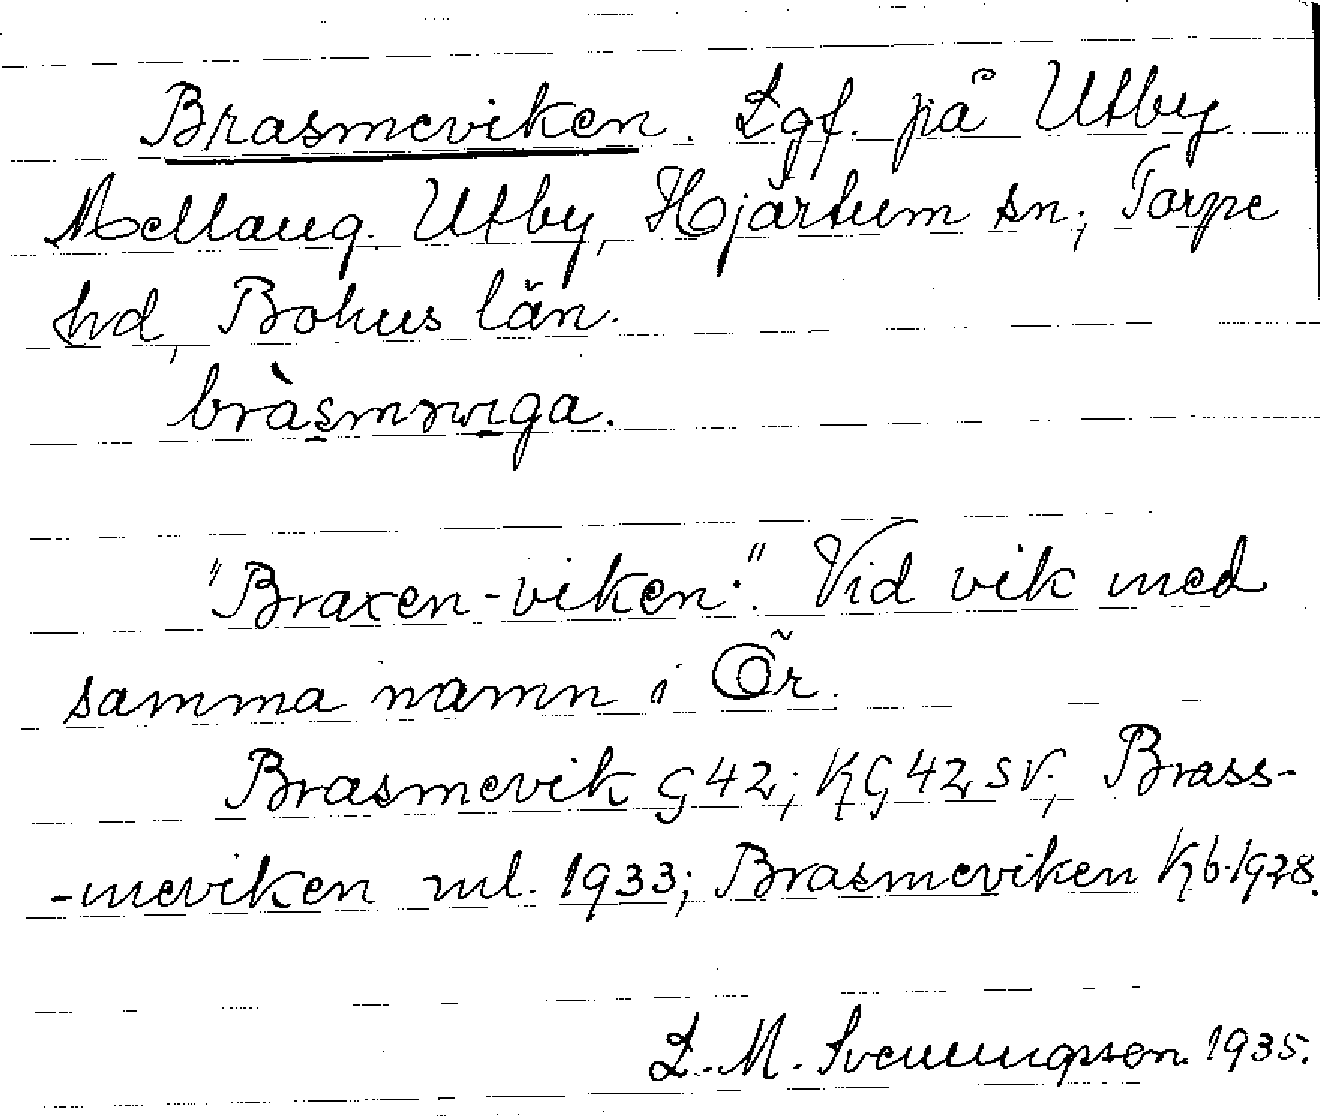 Brasmeviken. Lgf. på Utby
Mellang. Utby, Hjärtum sn; Torpe
hd, Bohus län.
bràsmɴvɪga.
"Braxen-viken". Vid vik med
samma namn i Ör.
Brasmevik G42; KG42SV; Brass-
-meviken ml. 1933; Brasmeviken Kb.1928.
L.M. Svenungsson. 1935.